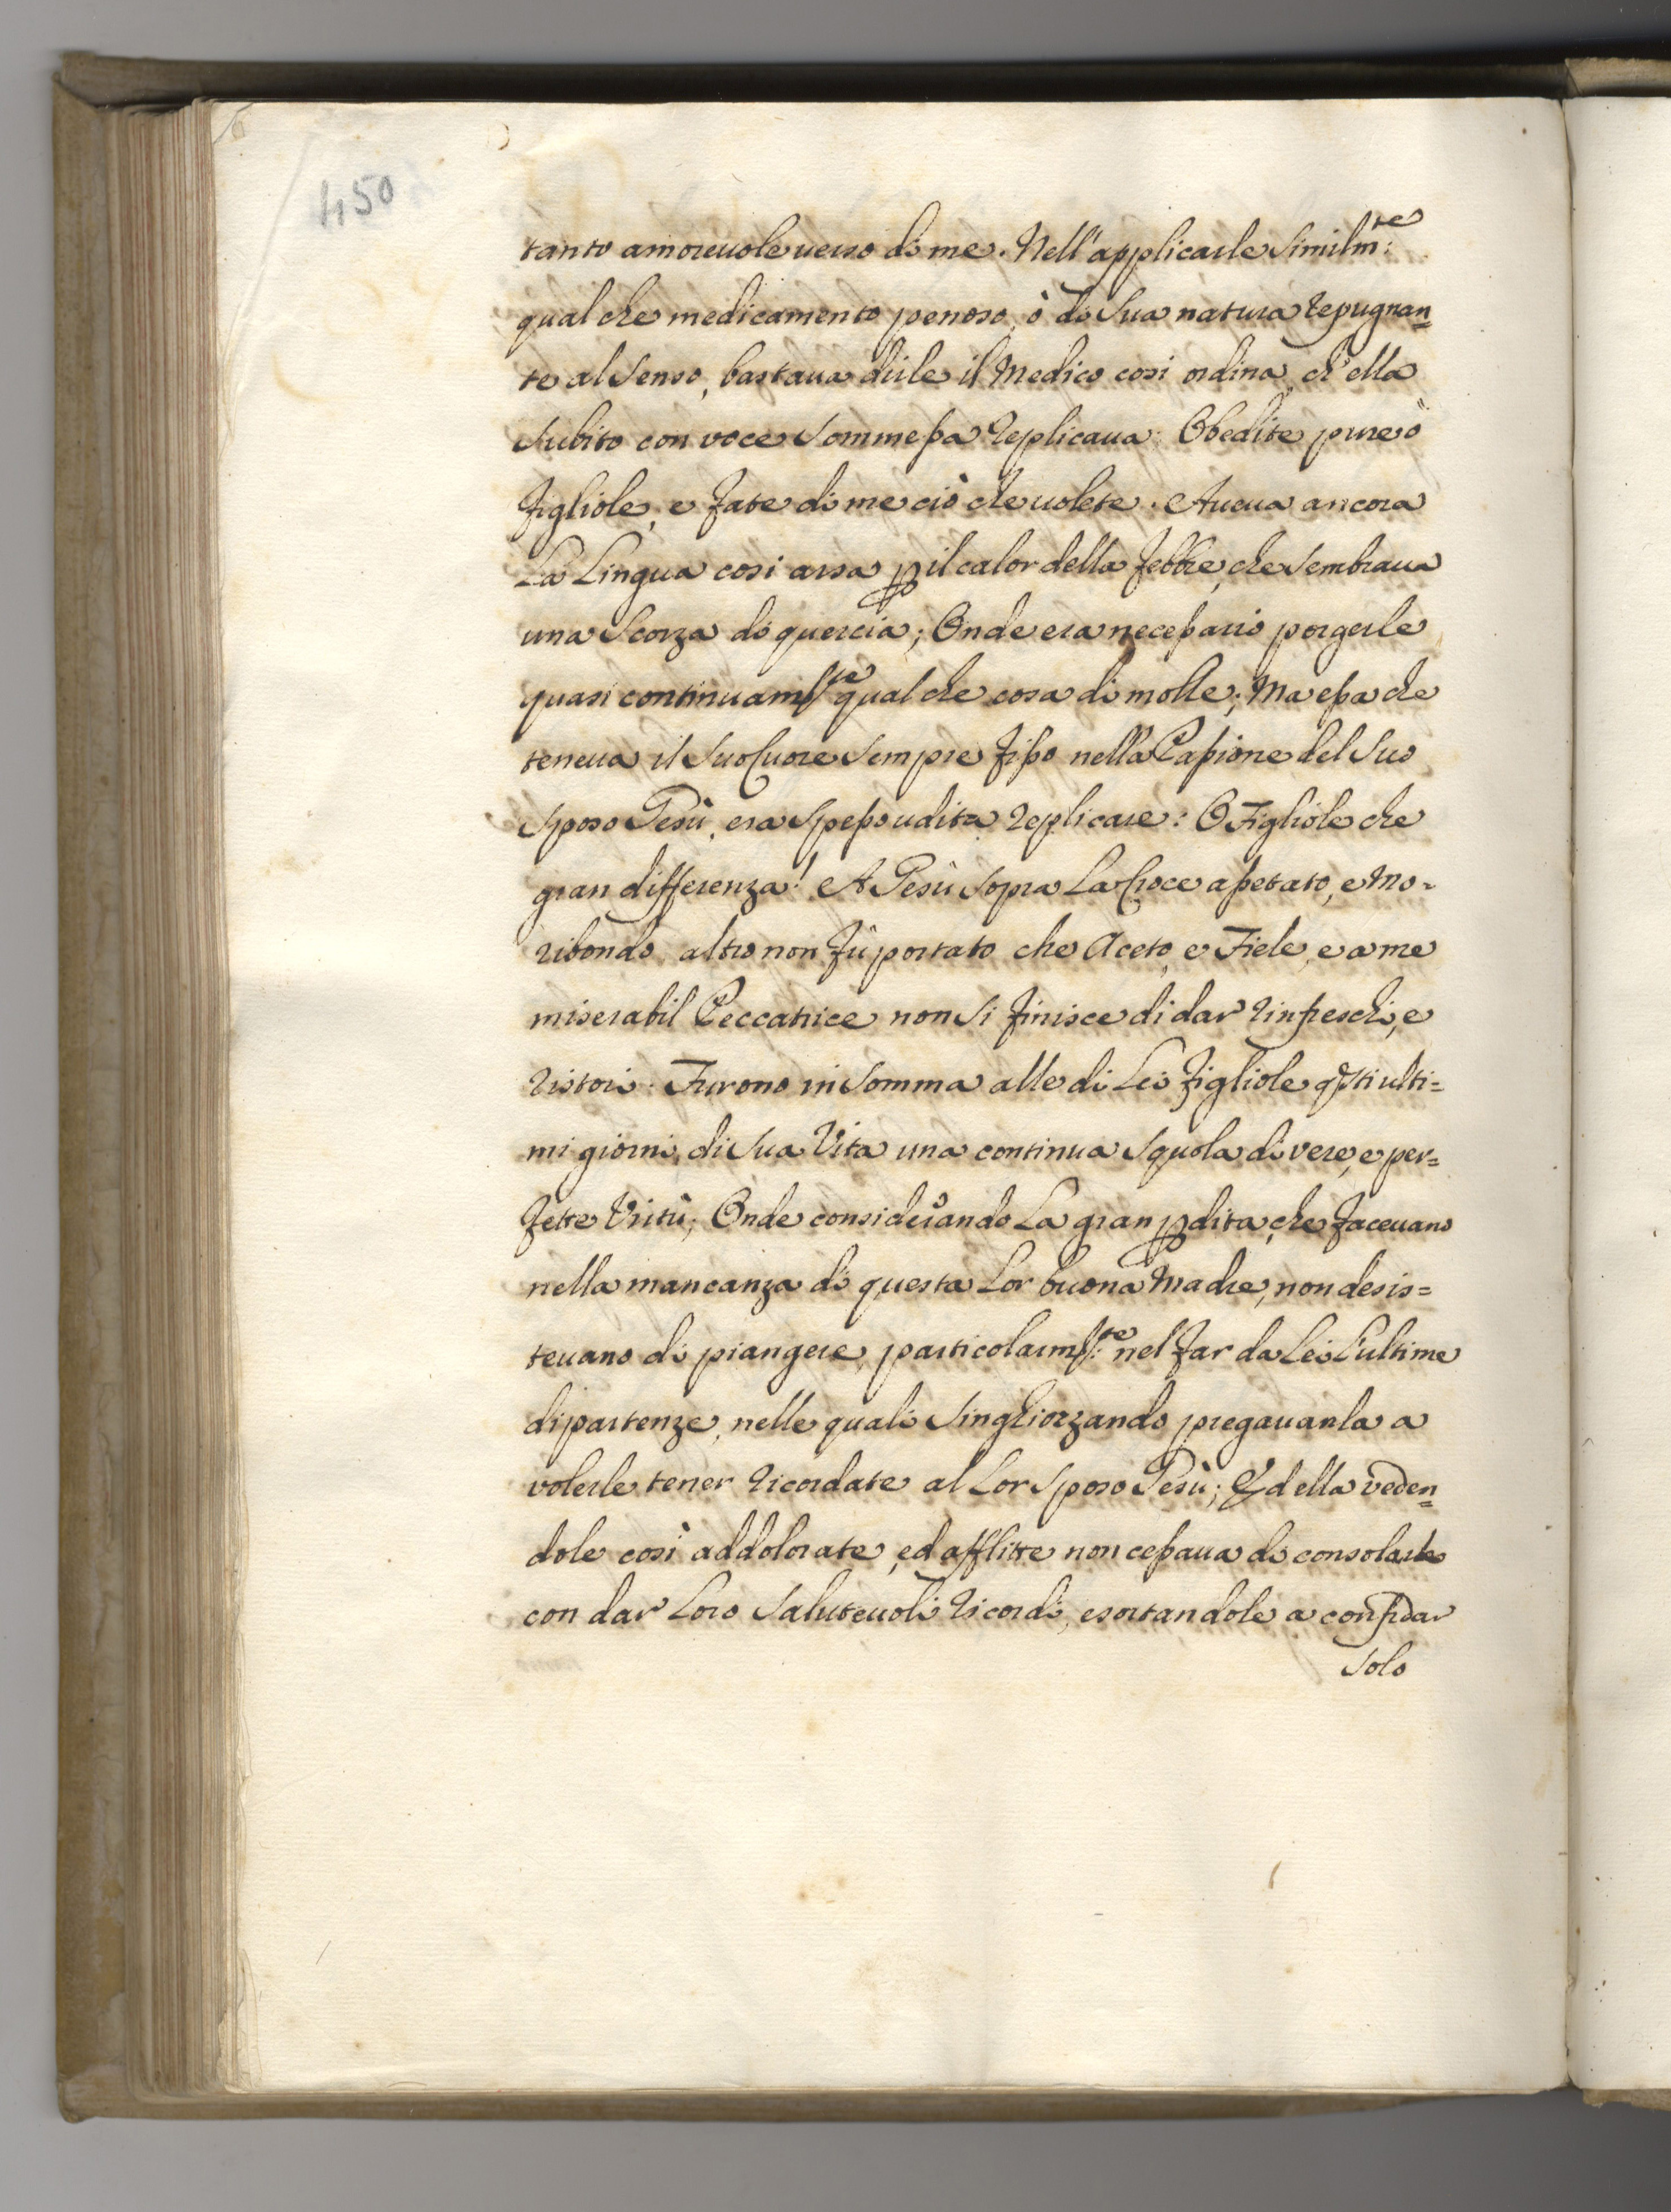 450
tanto amoreuole uerso di me. Nell'applicarle Similm:te
qualche medicamento penoso, ò di Sua natura repugnan=
te al Senso, bastaua dirle il Medico cosi ordina, ch'ella
Subito con voce Sommessa replicaua: Obedite pure ò
figliole, e fate di me ciò che uolete. Aueua ancora
La Lingua cosi arsa p il calor della febbre, che Sembraua
una Scorza di quercia; Onde era necessario porgerle
quasi continuam.te qualche cosa di molle; Ma essa che
teneua il Suo Cuore Sempre fisso nella Passione del Suo
Sposo Gesù, era Spesso udita replicare: O Figliole che
gran differenza! A Gesù Sopra La Croce assetato, e Mo=
ribondo altro non fù portato che Aceto, e Fiele, e a me
miserabil Peccatrice non Si finisce di dar rinfreschi, e
ristori. Furono in Somma alle di Lei figliole qsti ulti=
mi giorni, di Sua Vita una continua Squola di vere, e per=
fette Virtù; Onde considerando La gran pdita, che faceuano
nella mancanza di questa Lor buona Madre, non desis=
teuano di piangere, particolarm:te nel far da Lei L'ultime
dipartenze, nelle quali Singhiozzando pregauanla a
volerle tener ricordate al Lor Sposo Gesù; Ed ella veden=
dole così addolorate, ed afflitte non cessaua di consolarle
con dar Loro Saluteuoli ricordi, esortandole a confidar
Solo